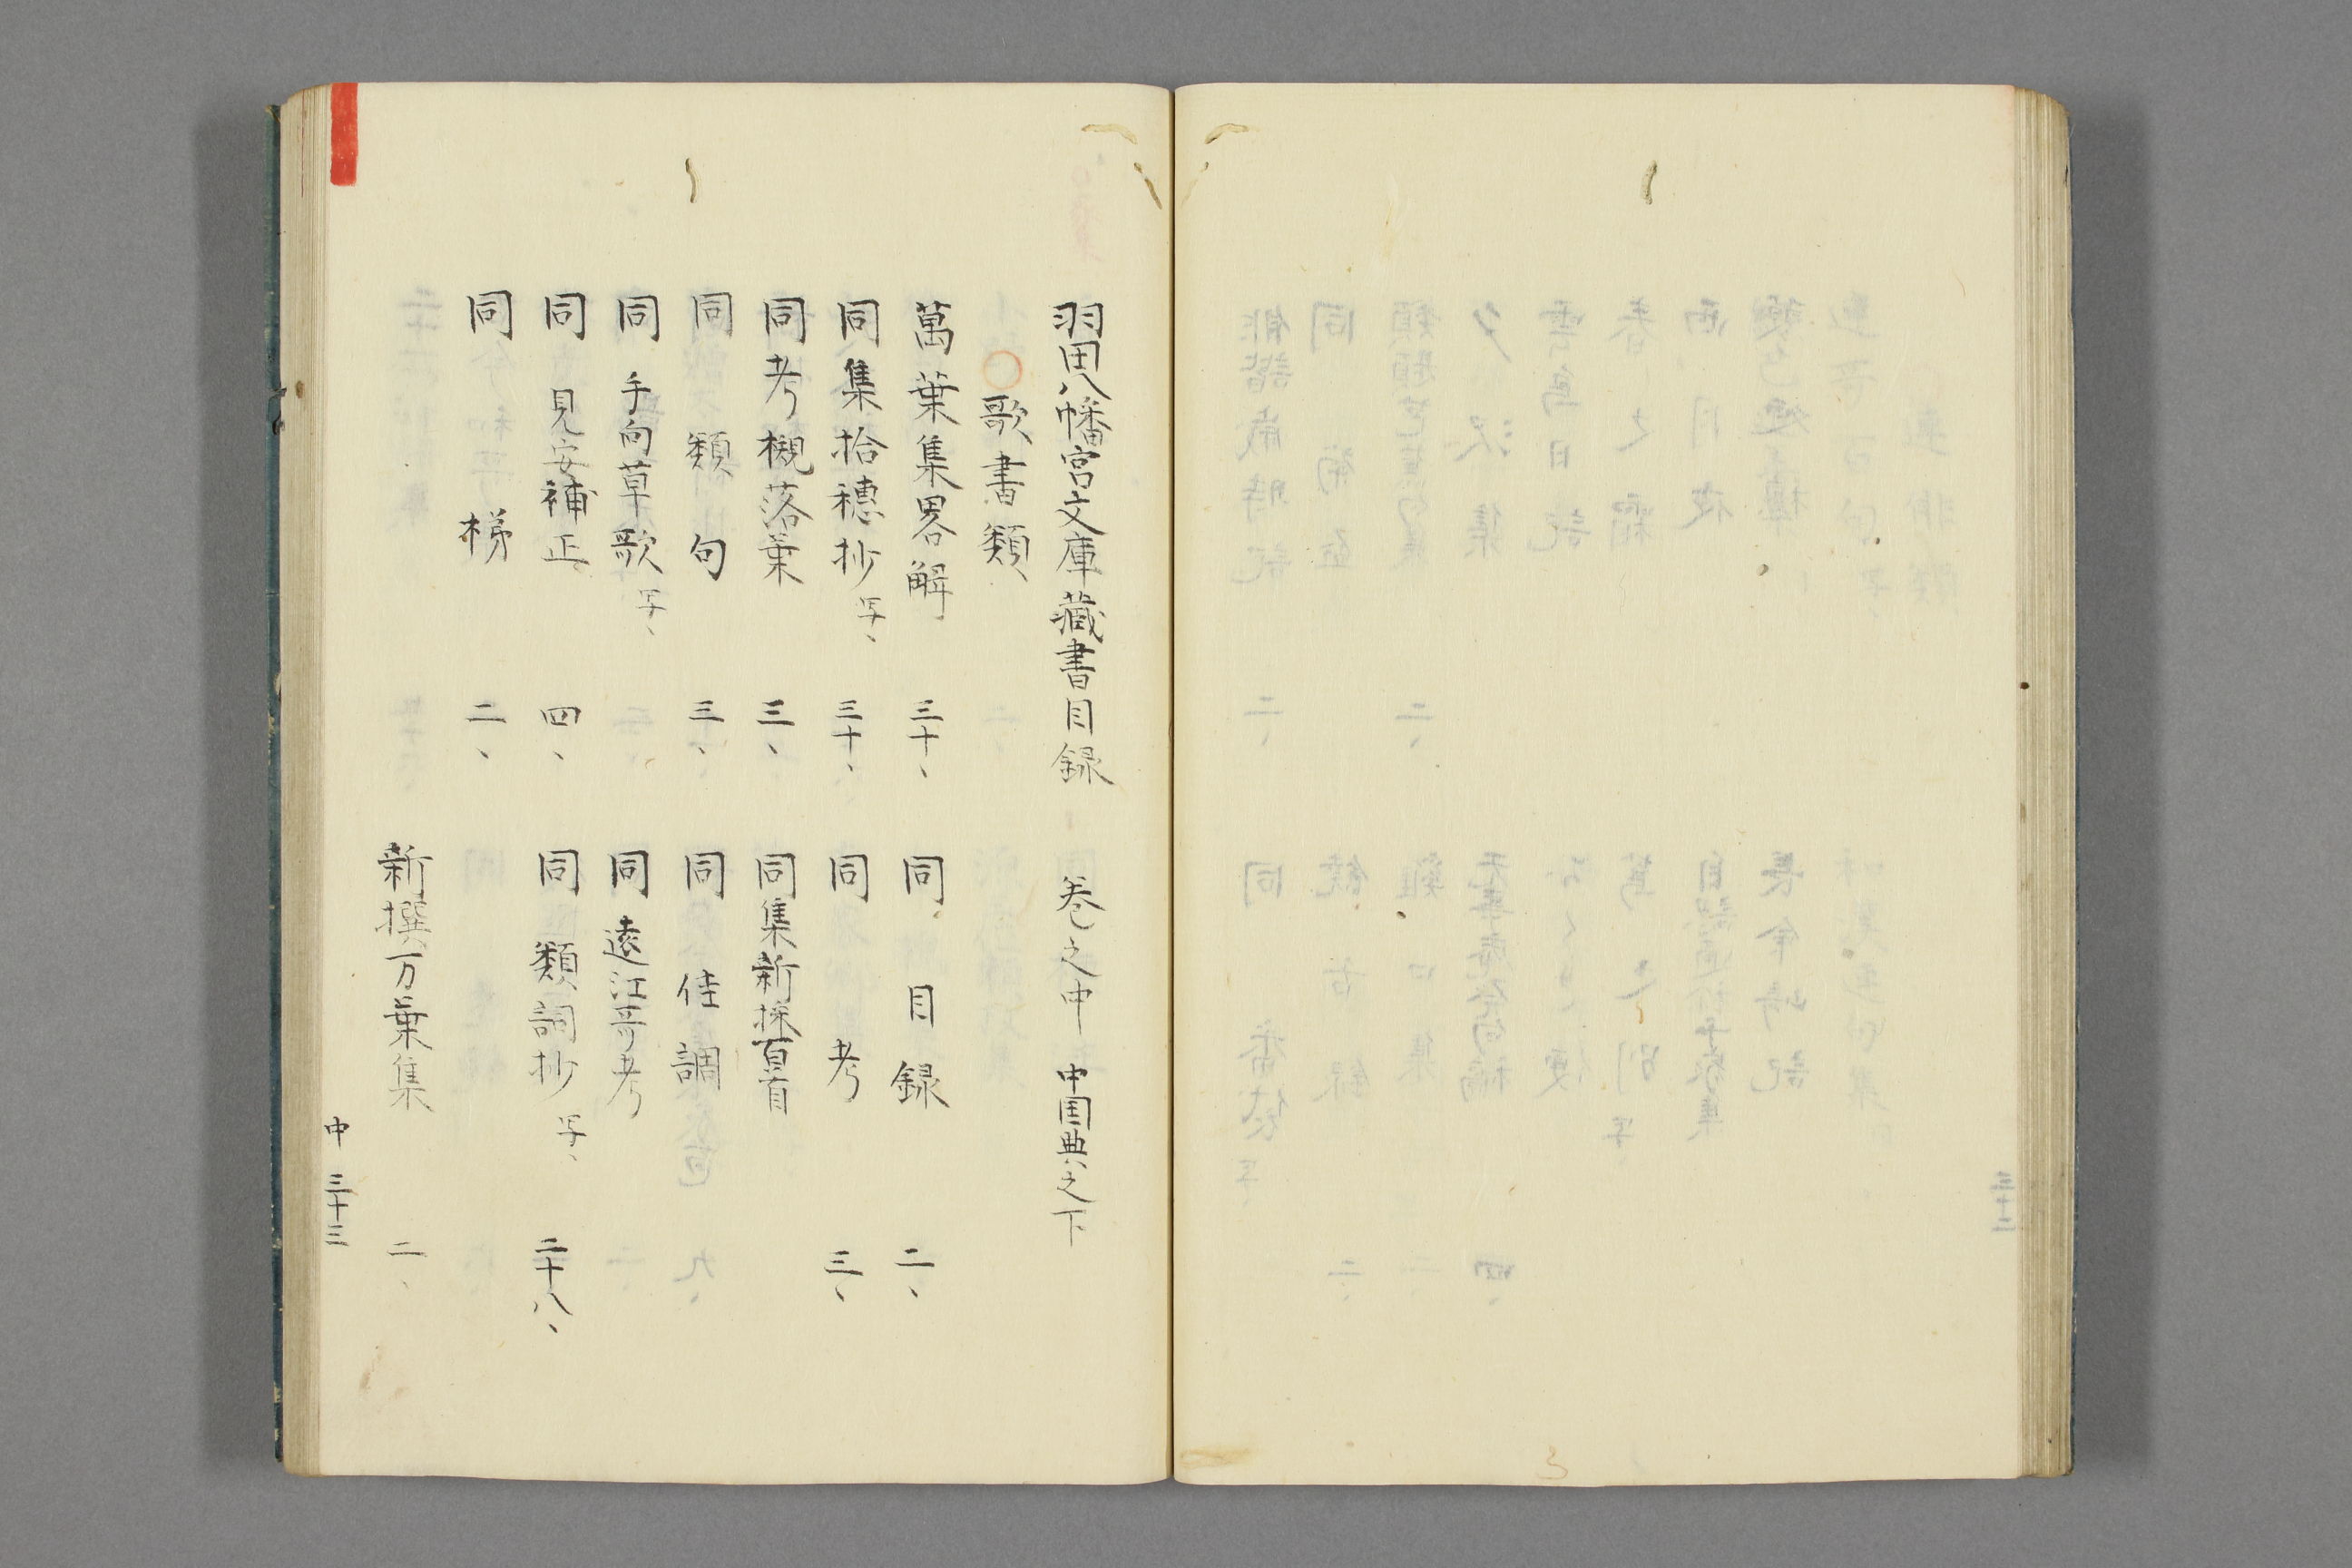 羽田八幡宮文庫藏書目録 巻之中 中国典之下
〇歌書類
萬葉集畧解 三十、 同 目録 二、
同集拾穗抄 写、 三十、 同 考 三、
同考槻落葉 三、 同集新採百首
同 類句 三、 同 佳調
同 手向草歌 写、 同 遠江哥考
同 見安補正 四、 同 類詞抄 写、 二十八、
同 梯 二、
新撰万葉集 二、
中 三十三